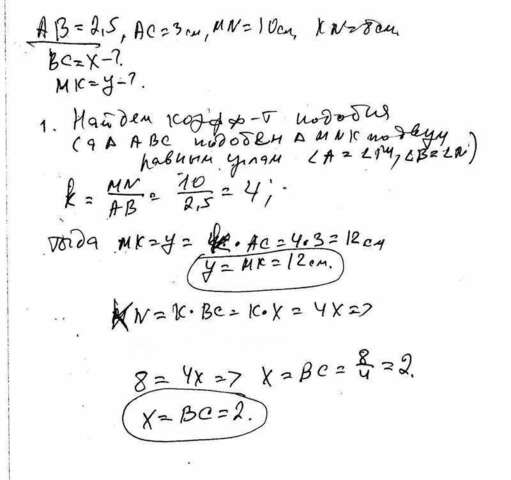 AB=2,5, AC=3см, MN=10см, KN=8см
BC=x-?.
MK=y-?.
1. Найдем коэфф-т подобия
(Δ ABC подобен Δ MNK по двум
равным углам ∠A=∠M, ∠B=∠N)
k = MN/AB = 10/2,5 = 4;
тогда MK=y= k·AC=4·3=12см
y=MK=12см.
KN=K·BC=K·X=4X=>
8=4X=> X=BC=8/4=2.
X=BC=2.